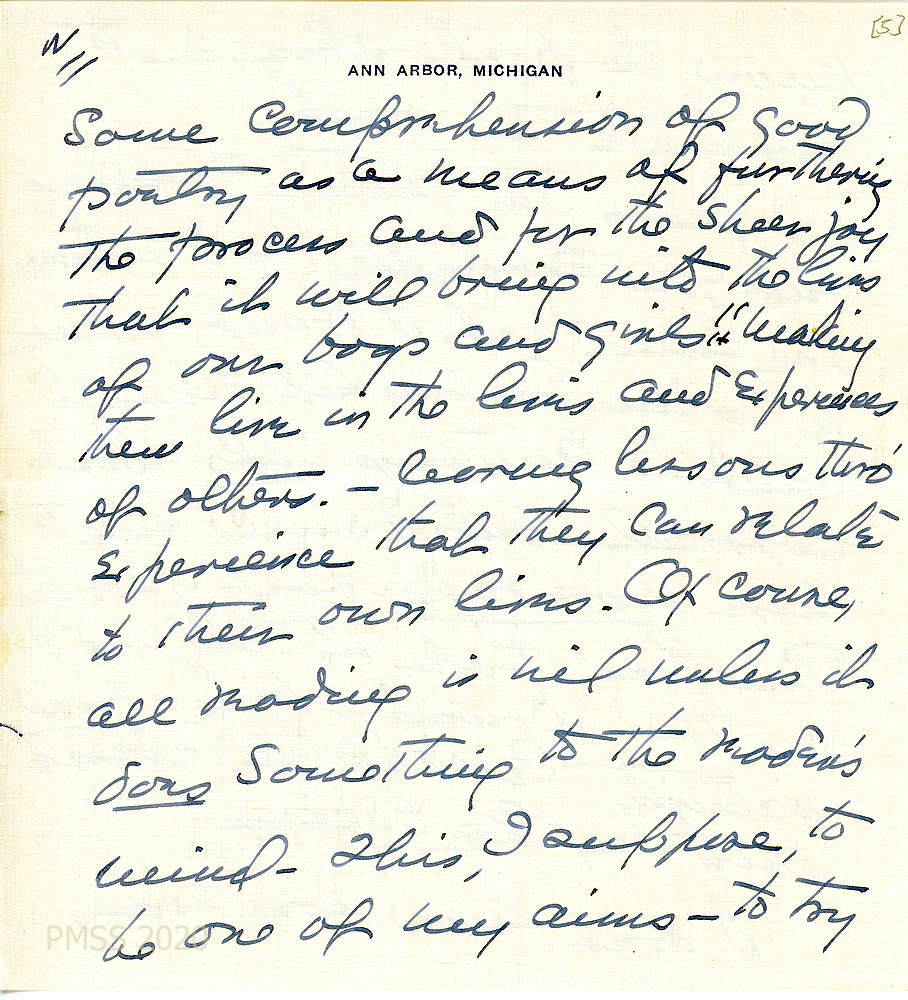 [5]
ANN ARBOR, MICHIGAN
Some comprehension of good
poetry as a means of furthering
the process and for the sheer joy
that it will bring into the lives
of our boys and girls!! making
them live in the lives and experiences
of others. — learning lessons thro'
experience that they can relate
to their own lives. Of course,
all reading is nil unless it
does something to the reader's
mind - This, I suppose, to
be one of my aims — to try
PMSS 2020